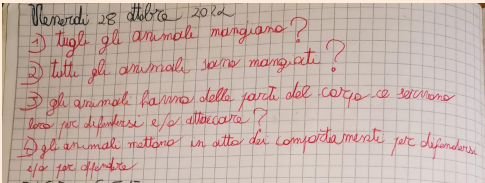 Venerdì 28 ottobre 2022
1) tugli gli animali mangiano?
2) tutti gli animali sono mangiati?
3) gli animali hanno delle parti del corpo ce servono
loro per difendersi e/o attaccare?
4) gli animali mettono in atto dei comportamenti per difendersi
e/o per offendere